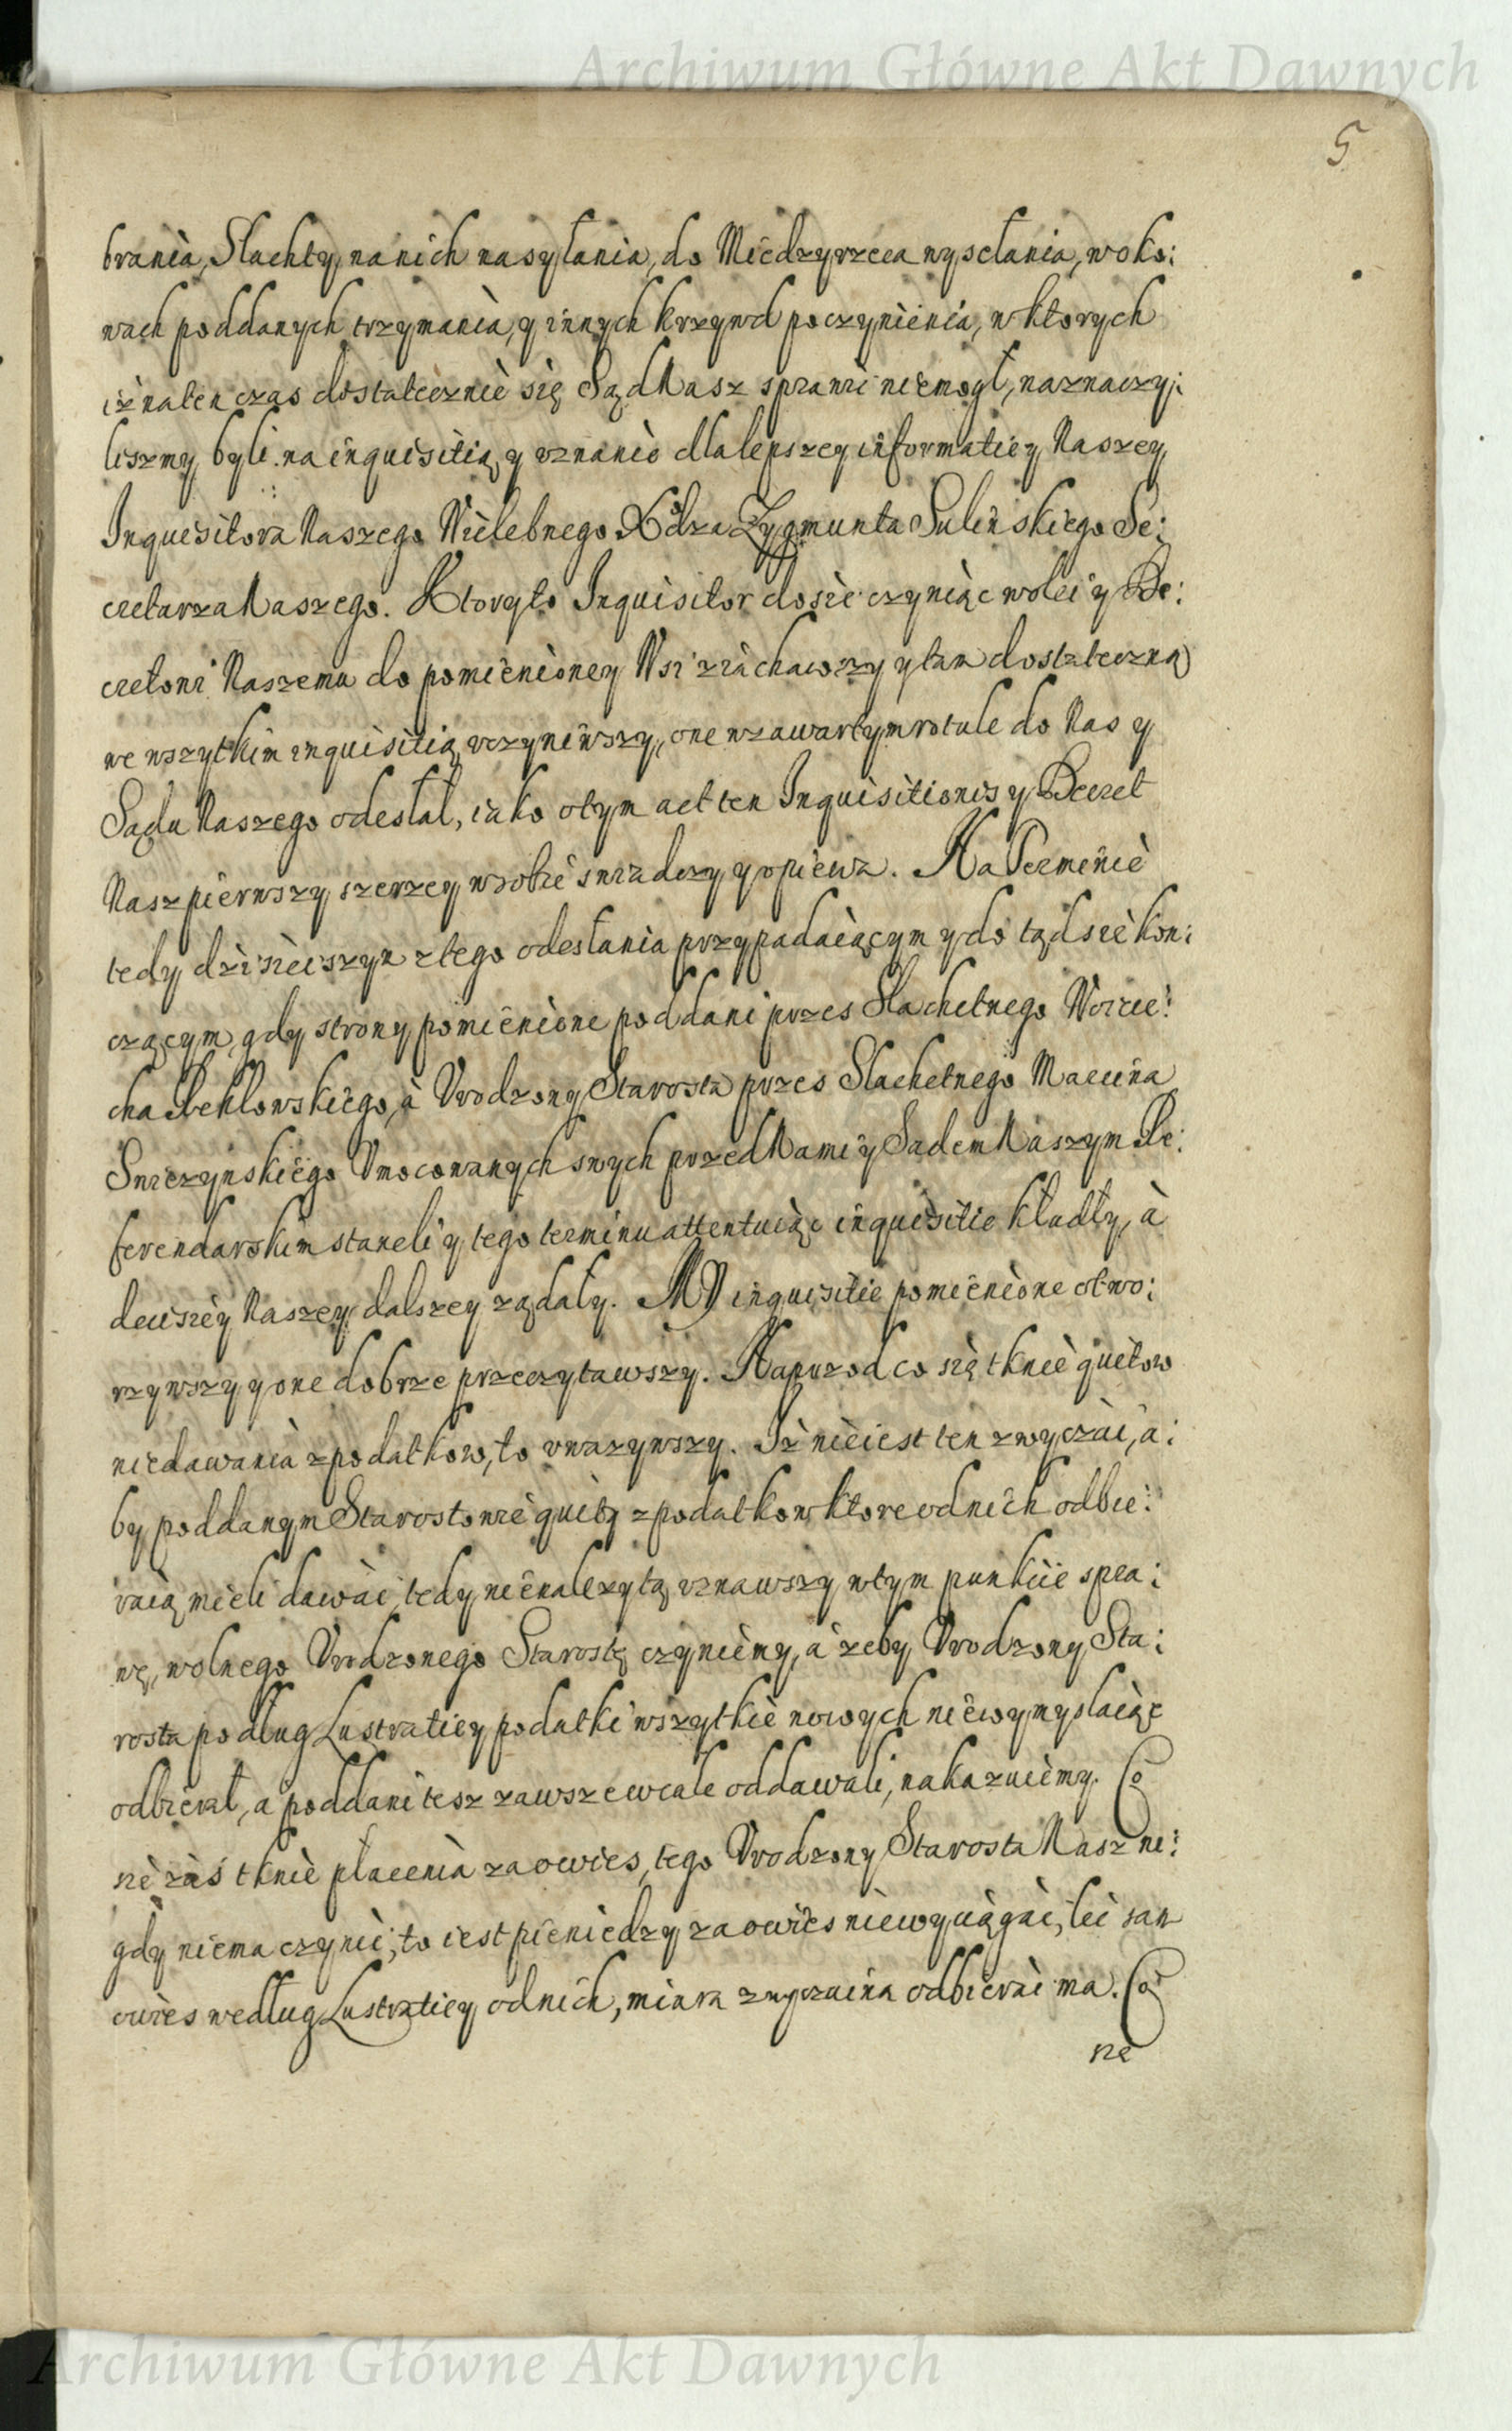 Archiwum Główne Akt Dawnych
5
brania, Slachty na nich nasyłania, do Miedzyrzeca wysełania, w oko:
wach poddanych trzymania, y innych krzywd poczynienia, w ktorych
iż na ten czas dostatecznie się Sąd Nasz sprawić niemogł, naznaczy:
liszmy byli na inquisitią y uznanie dla lepszey informatiey Naszey
Inquisitora Naszego Wielebnego Xdza Zygmunta Sulinskiego Se:
cretarza Naszego. Ktoryto Inquisitor dosić czyniąc wolei y De:
cretowi Naszemu do pomienioney Wsi ziachawszy y tam dostateczną
we wszytkim inquisitią uczyniwszy, one w zawartym rotule do Nas y
Sądu Naszego odesłał, iako o tym act ten Inquisitionis y Decret
Nasz pierwszy szerzey w sobie swiadczy y opiewa. Na Terminie
tedy dzisieiszym z tego odesłania przypadaiącym y do tąd sie kon:
czącym, gdy strony pomienione poddani przes Slachetnego Woicie:
cha, à Urodzony Starosta przes Slachetnego Marcina
Swiczynskiego Umocowanych swych przed Nami y Sadem Naszym Re:
ferendarskim staneli y tego terminu attentuiąc inquisitie kładły, à
decisiey Naszey dalszey żądały. MY inquisitie pomienione otwo:
rzywszy y one dobrze przeczytawszy. Naprzod co się tknie quitow
niedawania z podatkow, to uważywszy. Iż nie iest ten zwyczai, a:
by poddanym Starostowie quity z podatkow ktore od nich odbie:
raią mieli dawać, tedy nienależytą uznawszy w tym punkcie spra:
wę, wolnego Urodzonego Starostę czyniemy, à żeby Urodzony Sta:
rosta podług Lustratiey podatki wszytkie nowych niewymyslaiąc
odbierał, a poddani tesz zawsze wcale oddawali, nakazuiemy. Co
sie zaś tknie płacenia za owies, tego Urodzony Starosta Nasz ni:
gdy niema czynić, to iest pieniedzy za owies niewyciągać, leć sam
owies według Lustratiey od nich, miara zwyczaina odbierać ma. Co
sie
Archiwum Główne Akt Dawnych